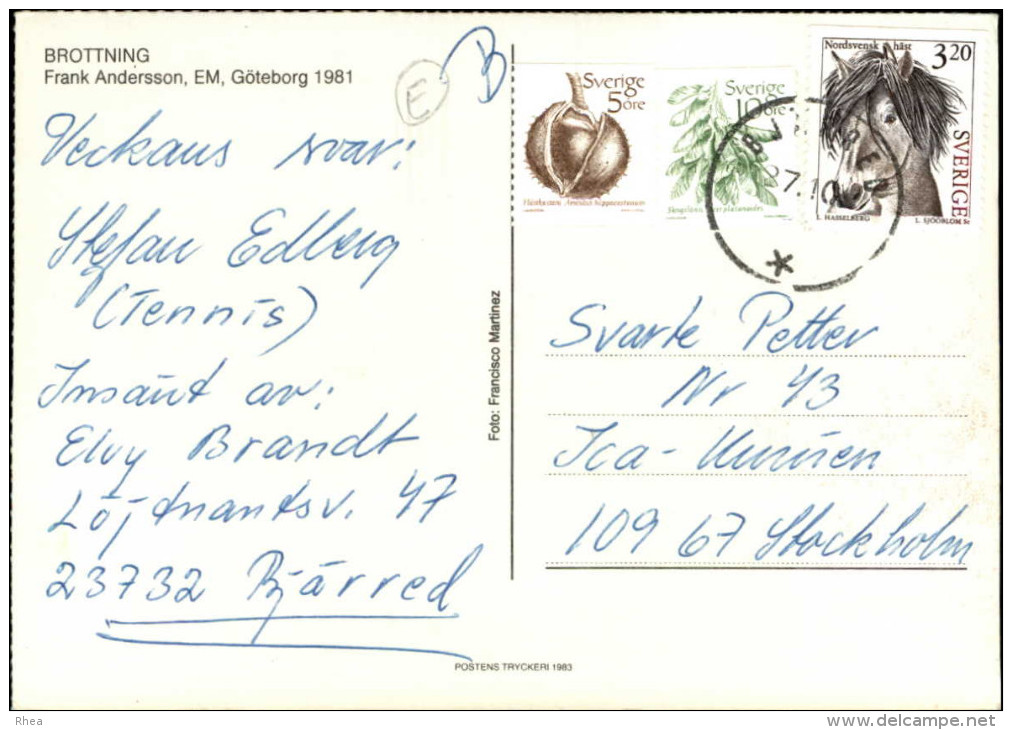 BROTTNING
Frank Andersson, EM, Göteborg 1981
E
B
Veckans svar:
Stefan Edberg
(Tennis)
Insänt av:
Elvy Brandt
Löjtnantsv. 47
23732 Bjärred
Foto: Francisco Martinez
Sverige
5 öre
Hästkastanj Aesculus hippocastanum
Sverige
10 öre
Nordsvensk häst
3.20
SVERIGE
L. SJÖÖBLOM Sc
27.10
Svarte Petter
Nr 43
Ica-Kuriren
109 67 Stockholm
POSTENS TRYCKERI 1983
Rhea
delcampe.net